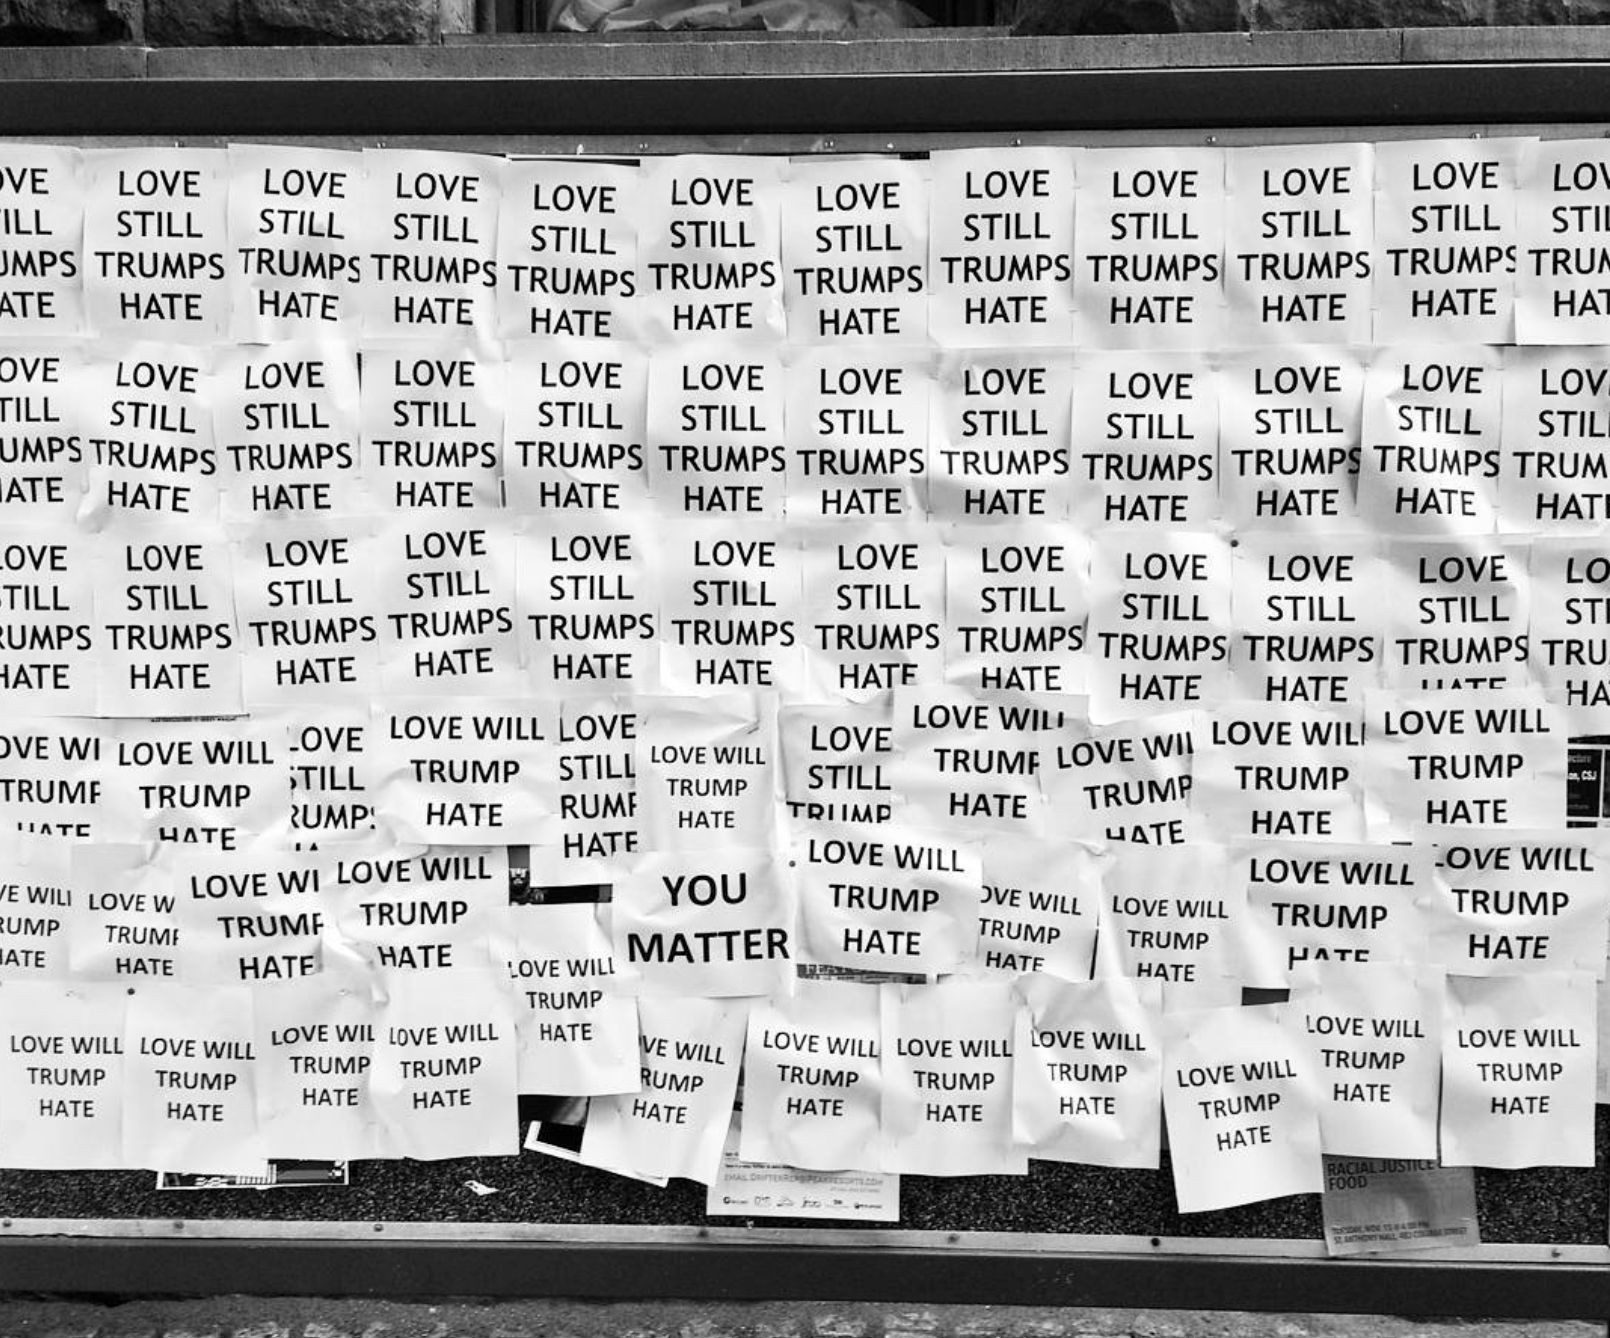 OVE
ILL
UMPS
ATE
LOVE
STILL
TRUMPS
HATE
LOVE
STILL
TRUMPS
HATE
LOVE
STILL
TRUMPS
HATE
LOVE
STILL
TRUMPS
HATE
LOVE
STILL
TRUMPS
HATE
LOVE
STILL
TRUMPS
HATE
LOVE
STILL
TRUMPS
HATE
LOVE
STILL
TRUMPS
HATE
LOVE
STILL
TRUMPS
HATE
LOVE
STILL
TRUMPS
HATE
LOV
STIL
TRUM
HAT
OVE
TILL
UMPS
HATE
LOVE
STILL
TRUMPS
HATE
LOVE
STILL
TRUMPS
HATE
LOVE
STILL
TRUMPS
HATE
LOVE
STILL
TRUMPS
HATE
LOVE
STILL
TRUMPS
HATE
LOVE
STILL
TRUMPS
HATE
LOVE
STILL
TRUMPS
HATE
LOVE
STILL
TRUMPS
HATE
LOVE
STILL
TRUMPS
HATE
LOVE
STILL
TRUMPS
HATE
LOV
STIL
TRUM
HAT
LOVE
STILL
RUMPS
HATE
LOVE
STILL
TRUMPS
HATE
LOVE
STILL
TRUMPS
HATE
LOVE
STILL
TRUMPS
HATE
LOVE
STILL
TRUMPS
HATE
LOVE
STILL
TRUMPS
HATE
LOVE
STILL
TRUMPS
HATE
LOVE
STILL
TRUMPS
HATE
LOVE
STILL
TRUMPS
HATE
LOVE
STILL
TRUMPS
HATE
LOVE
STILL
TRUMPS
HATE
LO
STI
TRU
HA
OVE WI
TRUMP
HATE
LOVE WILL
TRUMP
HATE
LOVE
STILL
RUMPS
LOVE WILL
TRUMP
HATE
LOVE
STILL
RUMP
HATE
LOVE WILL
TRUMP
HATE
LOVE
STILL
TRUMP
LOVE WILL
TRUMP
HATE
LOVE WILL
TRUMP
HATE
LOVE WILL
TRUMP
HATE
LOVE WILL
TRUMP
HATE
on, CSJ
VE WILL
RUMP
HATE
LOVE W
TRUMP
HATE
LOVE WI
TRUMP
HATE
LOVE WILL
TRUMP
HATE
LOVE WILL
TRUMP
HATE
YOU
MATTER
LOVE WILL
TRUMP
HATE
OVE WILL
TRUMP
HATE
LOVE WILL
TRUMP
HATE
LOVE WILL
TRUMP
HATE
LOVE WILL
TRUMP
HATE
LOVE WILL
TRUMP
HATE
LOVE WILL
TRUMP
HATE
LOVE WIL
TRUMP
HATE
LOVE WILL
TRUMP
HATE
VE WILL
RUMP
HATE
LOVE WILL
TRUMP
HATE
LOVE WILL
TRUMP
HATE
LOVE WILL
TRUMP
HATE
LOVE WILL
TRUMP
HATE
LOVE WILL
TRUMP
HATE
LOVE WILL
TRUMP
HATE
RACIAL JUSTICE
FOOD
TUESDAY, NOV. 15
ST. ANTHONY HALL